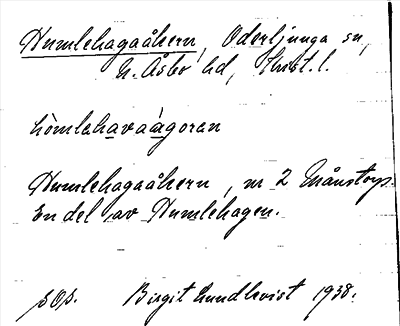 Humlehagaåkern, Oderljunga sn,
N. Åsbo hd, Krist. l.
hòmlehavaàgoran
Humlehagaåkern, nr 2 Månstorp.
En del av Humlehagen.
Birgit Lundkvist 1938.